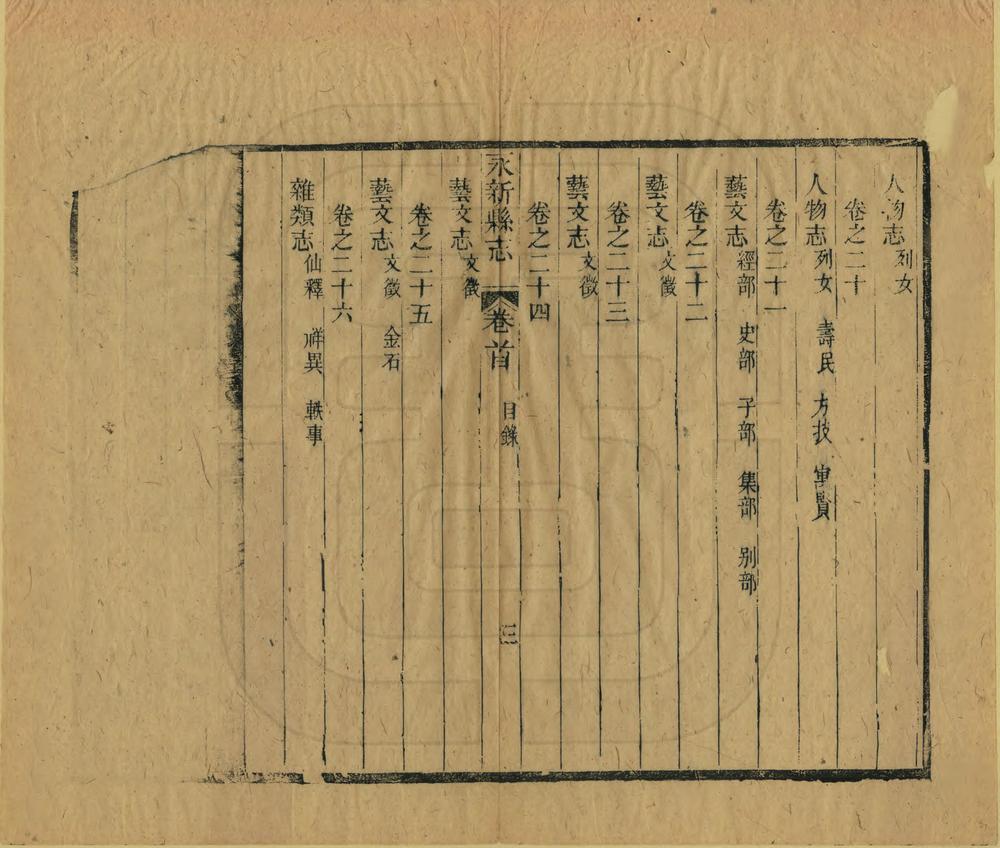 人物志 列女
卷之二十
人物志 列女 壽民 方技 寓賢
卷之二十一
藝文志 經部 史部 子部 集部 别部
卷之二十二
藝文志 文徵
卷之二十三
藝文志 文徵
卷之二十四
永新縣志 卷首 目錄 三
藝文志 文徵
卷之二十五
藝文志 文徵 金石
卷之二十六
雜類志 仙釋 祥異 軼事